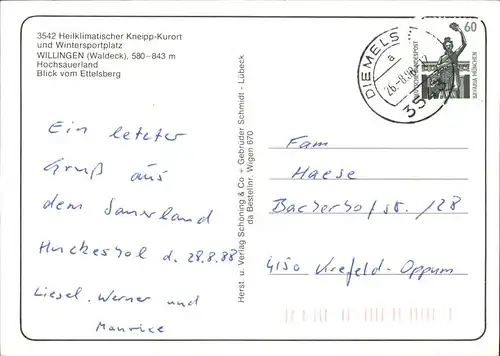 3542 Heilklimatischer Kneipp-Kurort
und Wintersportplatz
WILLINGEN (Waldeck), 580-843 m
Hochsauerland
Blick vom Ettelsberg
Ein letzter
Gruß aus
dem Sauerland
d. 28.8.88
Liesel, Werner und
Maurice
Herst. u. Verlag Schöning & Co + Gebrüder Schmidt - Lübeck
da Bestellnr. Wigen 670
DIEMELS
a
3543
60
DEUTSCHE BUNDESPOST
BAVARIA MÜNCHEN
Fam
Haese
Backerhofstr. 128
4150 Krefeld-Oppum